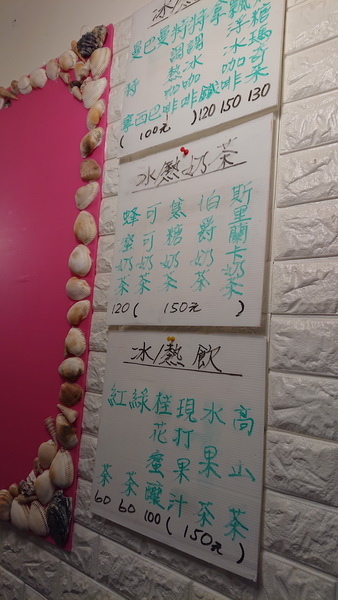 冰/
曼特寧
巴西
曼巴
特調熱咖啡
特調冰咖啡
拿鐵
飄浮冰咖啡
糖瑪奇朵
( 100元 ) 120 150 130
冰/熱奶茶
蜂蜜奶茶
可可奶茶
焦糖奶茶
伯爵奶茶
斯里蘭卡奶茶
120 ( 150元 )
冰/熱飲
紅茶
綠茶
桂花蜜釀
現打果汁
水果茶
高山茶
60 60 100 ( 150元 )